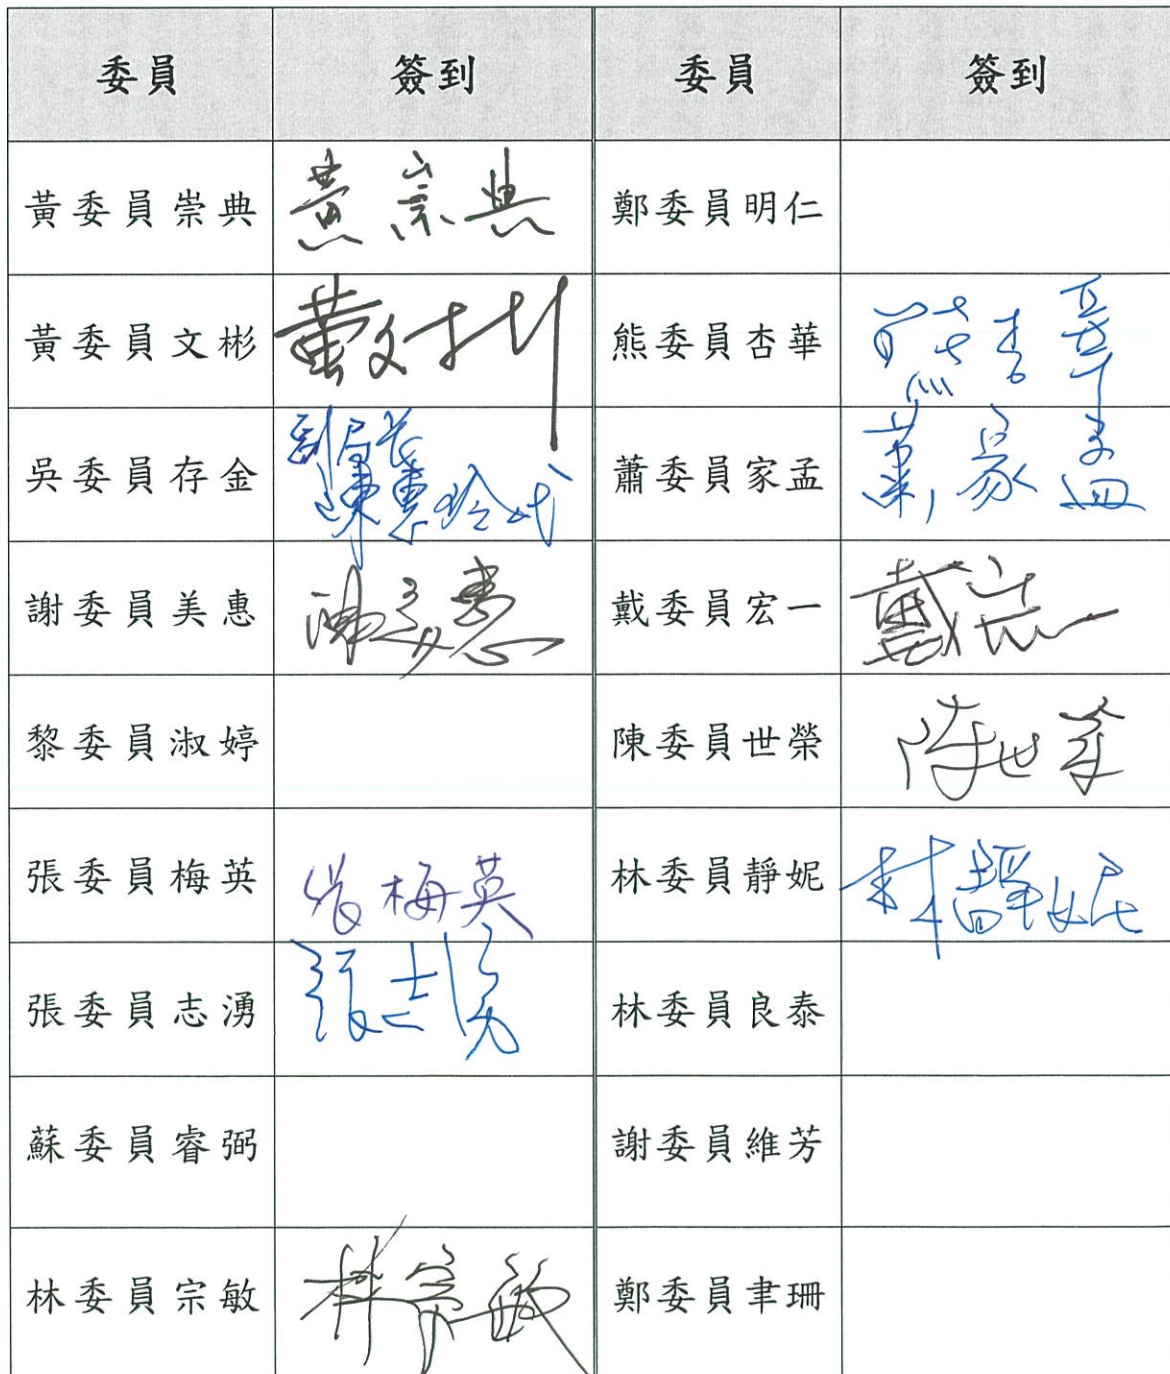 委員 簽到 委員 簽到
黃委員崇典 黃崇典 鄭委員明仁
黃委員文彬 黃文彬 熊委員杏華 熊杏華
吳委員存金 副局長 蕭委員家孟 蕭家孟
陳 玲代
謝委員美惠 謝美惠 戴委員宏一 戴宏一
黎委員淑婷 陳委員世榮 陳世榮
張委員梅英 張梅英 林委員靜妮 林靜妮
張委員志湧 張志湧 林委員良泰
蘇委員睿弼 謝委員維芳
林委員宗敏 林宗敏 鄭委員聿珊